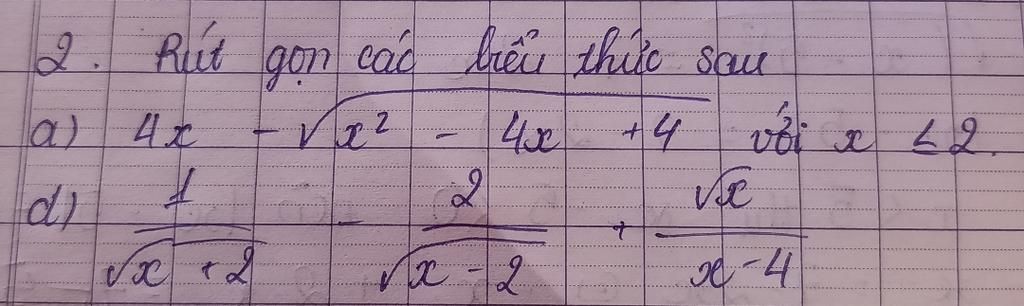 2. Rút gọn các biểu thức sau
a) 4x - √(x² - 4x + 4) với x ≤ 2.
d) 1/(√x + 2) - 2/(√x - 2) + √x/(x - 4)